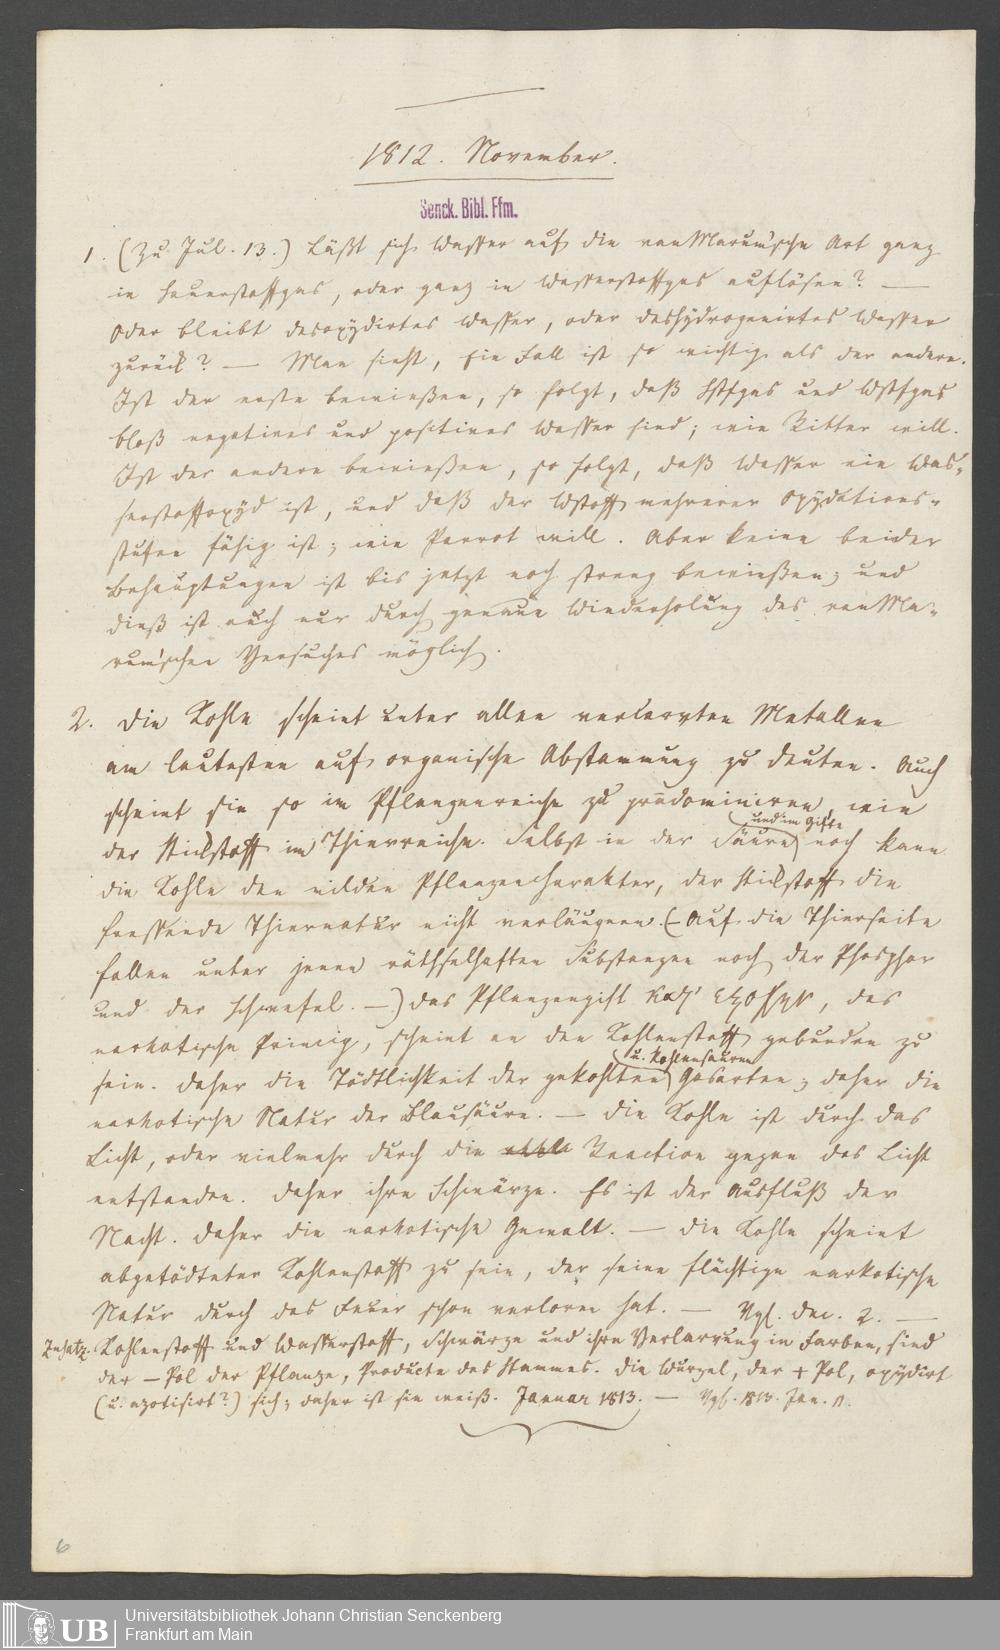 1812. November.
Senck. Bibl. Ffm.
1. (Zu Jul. 13.) Läßt sich Wasser auf die vanMarum'sche Art ganz
in Sauerstoffgas, oder ganz in Wasserstoffgas auflösen? —
Oder bleibt desoxydirtes Wasser, oder deshydrogenirtes Wasser
zurück? — Man sieht, Ein Fall ist so wichtig als der andere.
Ist der erste bewießen, so folgt, daß Sstfgas und Wstfgas
bloß negatives und positives Wasser sind; wie Ritter will.
Ist der andere bewießen, so folgt, daß Wasser ein Was-
serstoffoxyd ist, und daß der Wstoff mehrerer Oxydations-
stufen fähig ist; wie Parrot will. Aber keine beider
Behauptungen ist bis jetzt noch streng bewießen; und
dieß ist auch nur durch genaue Wiederholung des vanMa-
rum'schen Versuches möglich.
2. Die Kohle scheint unter allen verlarvten Metallen
am lautesten auf organische Abstammung zu deuten. Auch
scheint sie so im Pflanzenreiche zu prädominiren, wie
und im Gifte
der Stickstoff im Thierreiche. Selbst in der Säure noch kann
die Kohle den milden Pflanzencharakter, der Stickstoff die
fressende Thiernatur nicht verläugnen. (– Auf die Thierseite
fallen unter jenen räthselhaften Substanzen noch der Phosphor
und der Schwefel. –) Das Pflanzengift κατ' εξοχην, das
narkotische Princip, scheint an den Kohlenstoff gebunden zu
u. kohlensauren
sein. Daher die Tödtlichkeit der gekohlten Gasarten; daher die
narkotische Natur der Blausäure. — Die Kohle ist durch das
Licht, oder vielmehr durch die Reaction gegen das Licht
entstanden. Daher ihre Schwärze. Es ist der Ausfluß der
Nacht. Daher die narkotische Gewalt. — Die Kohle scheint
abgetödteter Kohlenstoff zu sein, der seine flüchtige narkotische
Natur durch das Feuer schon verloren hat. — Vgl. Dec. 2. —
Zusatz. Kohlenstoff und Wasserstoff, Schwärze und ihre Verlarvung in Farben, sind
der – Pol der Pflanze, Producte des Stammes. Die Wurzel, der + Pol, oxydirt
(u. azotisirt?) sich; daher ist sie weiß. Januar 1813. — Vgl. 1813. Jan.
6
UB
Universitätsbibliothek Johann Christian Senckenberg
Frankfurt am Main